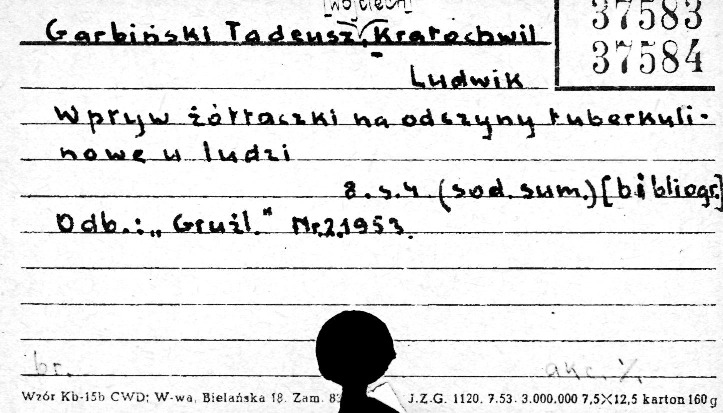 [Wojciech]
37583
Garbiński Tadeusz, Kratochwil
37584
Ludwik
Wpływ żółtaczki na odczyny tuberkuli-
nowe u ludzi
8. s. 4 (sod. sum.) [bibliogr.]
Odb.: „Gruźl." Nr. 2. 1953.
br. akc. %
Wzór Kb-15b CWD; W-wa, Bielańska 18. Zam. J.Z.G. 1120. 7.53. 3.000.000 7,5×12,5 karton 160 g